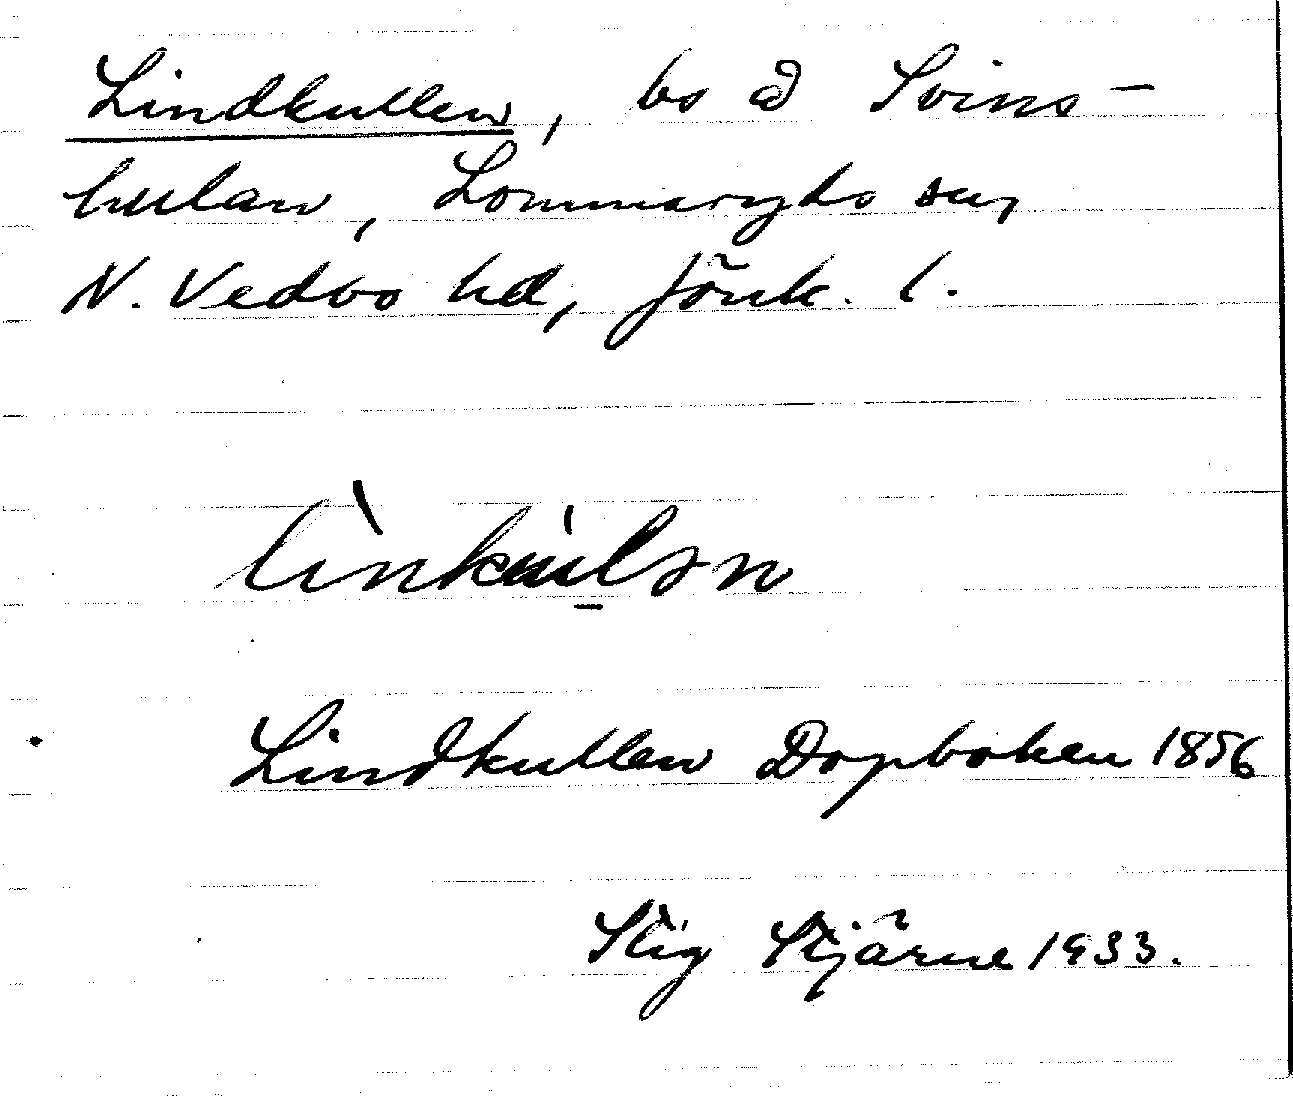 Lindkullen, bs å Svins-
kulan, Lommaryds sn,
N. Vedbo hd, Jönk. l.
Lindkullen Dopboken 1856
Stig Stjärne 1933.